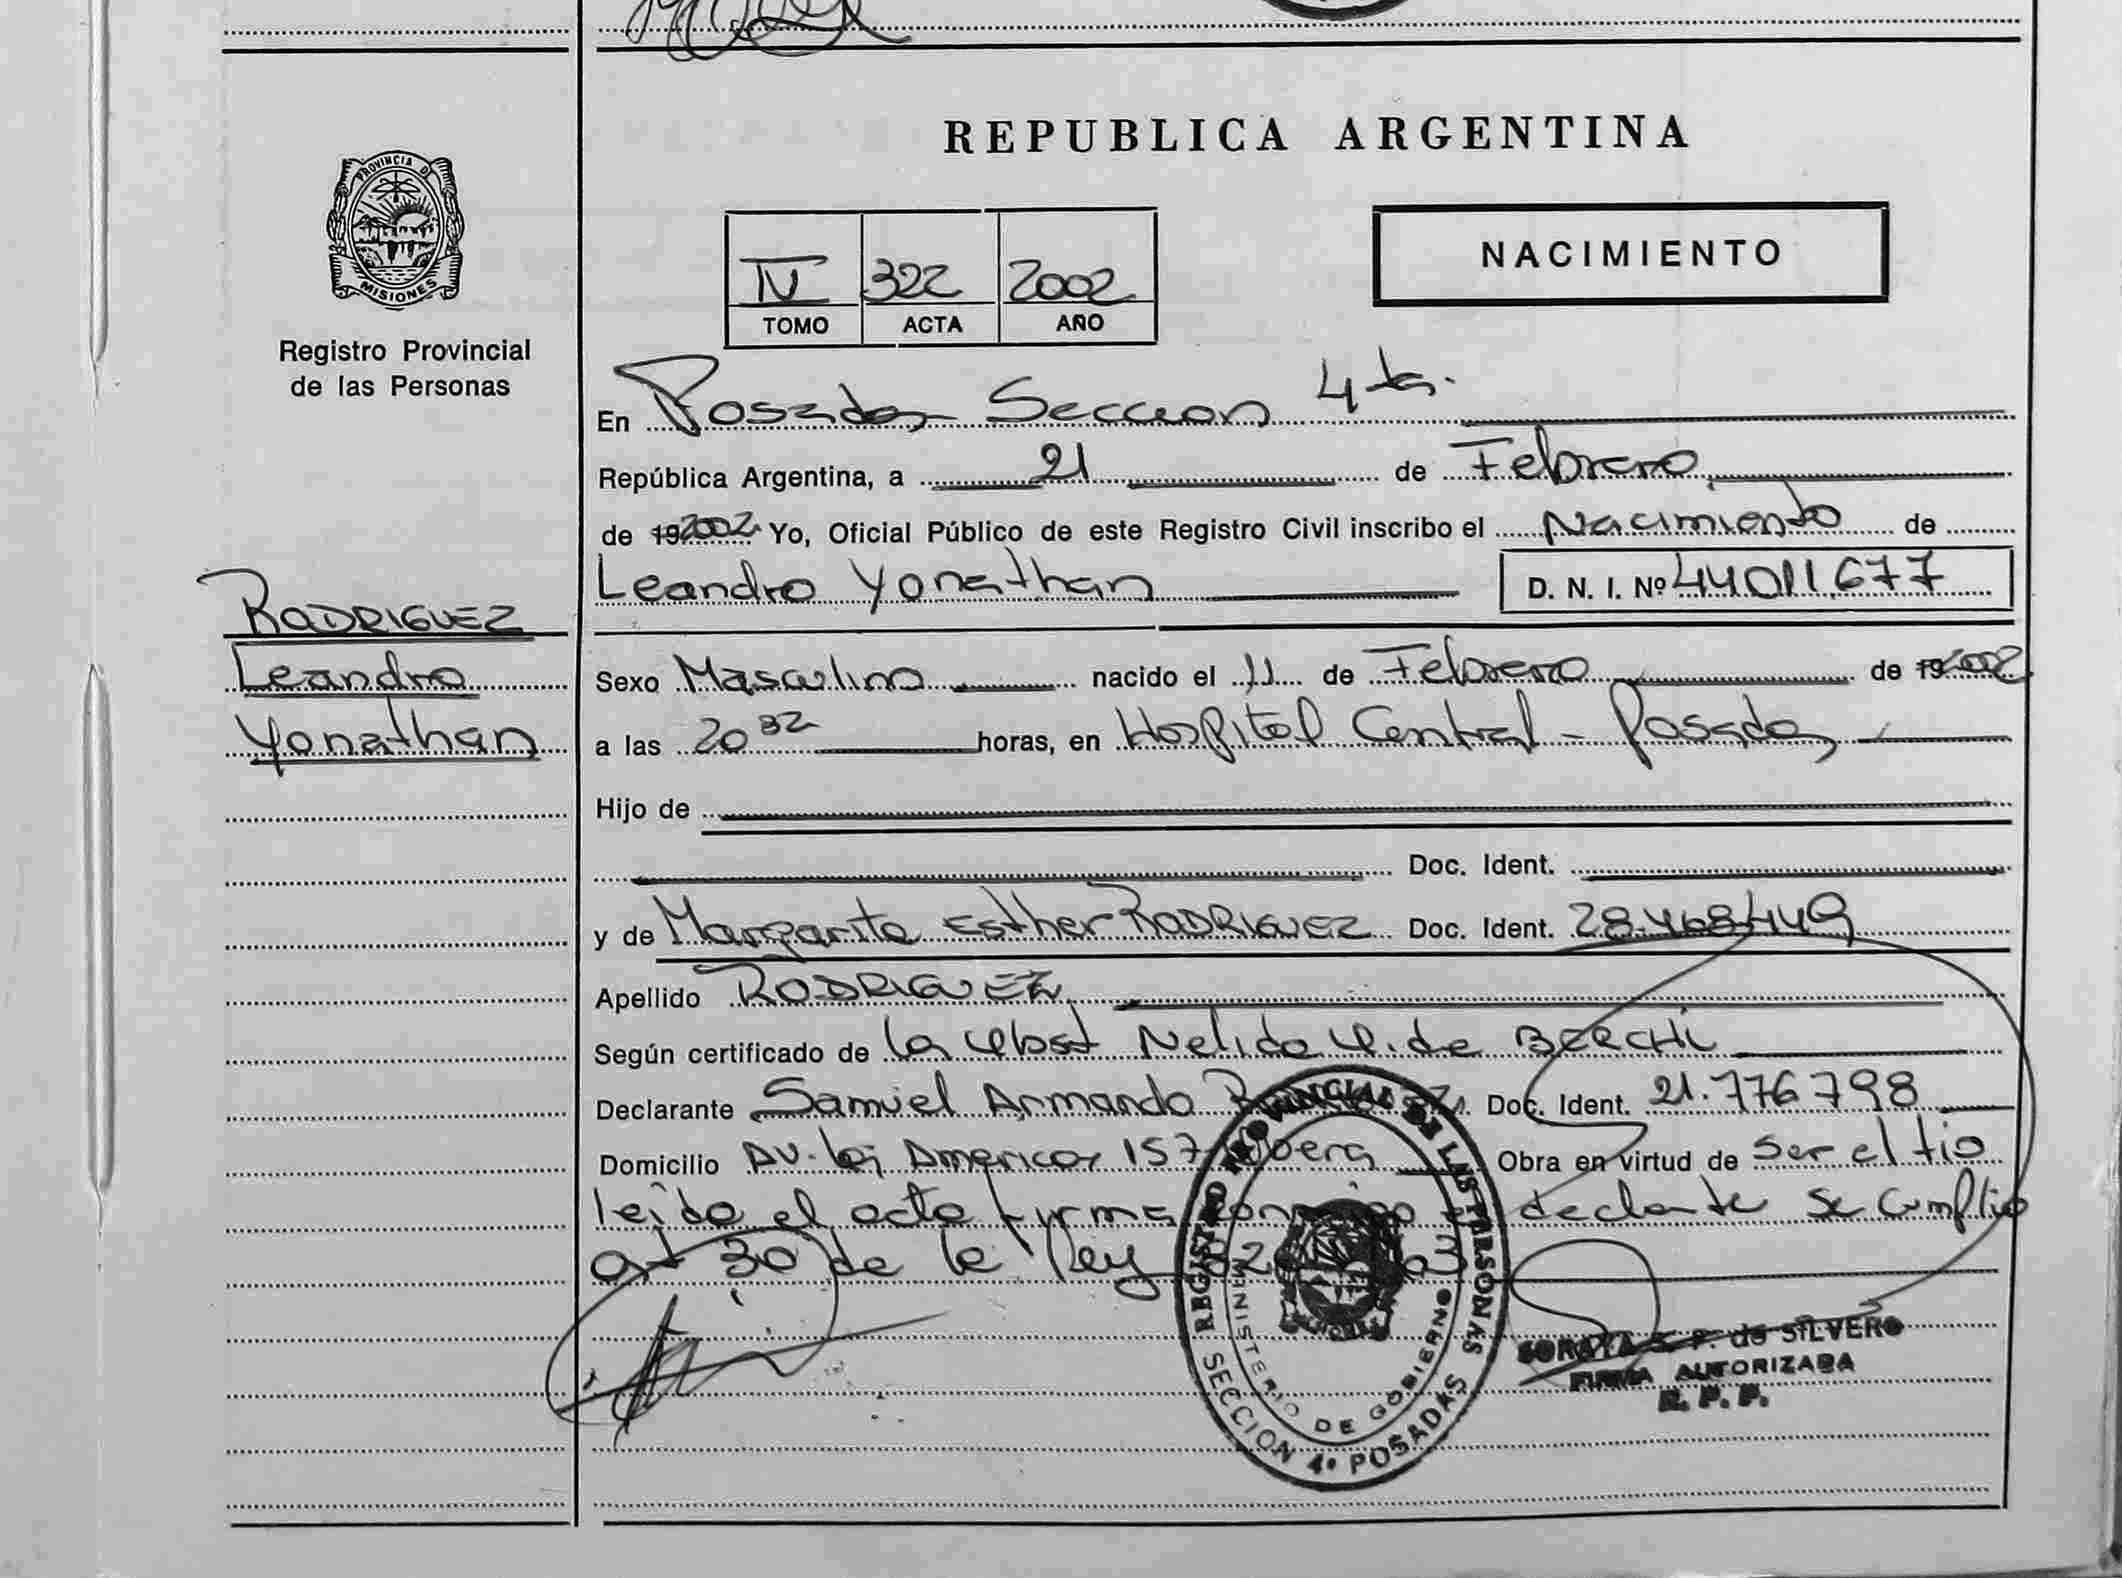 REPUBLICA ARGENTINA
PROVINCIA DE
MISIONES
Registro Provincial
de las Personas
NACIMIENTO
IV 322 2002
TOMO ACTA AÑO
En Posadas Seccion 4ta.
República Argentina, a 21 de Febrero
de 192002 Yo, Oficial Público de este Registro Civil inscribo el Nacimiento de
Leandro Yonathan D. N. I. Nº 44011.677
RODRIGUEZ
Leandro
Yonathan
Sexo Masculino nacido el 11 de Febrero de 192002
a las 20 32 horas, en Hospital Central - Posadas
Hijo de
Doc. Ident.
y de Margarita Esther RODRIGUEZ Doc. Ident. 28.468.449
Apellido RODRIGUEZ
Según certificado de la Obst Nelida de
Declarante Samuel Armando Doc. Ident. 21.776798
Domicilio Av. las Americas 157 Obera Obra en virtud de ser el tio
leido el acta firma conmigo el declante se cumplio
art 30 de la ley
REGISTRO PROVINCIAL DE LAS PERSONAS
MINISTERIO DE GOBIERNO
SECCION 4º POSADAS
P. de SILVERO
FIRMA AUTORIZADA
R. P. P.